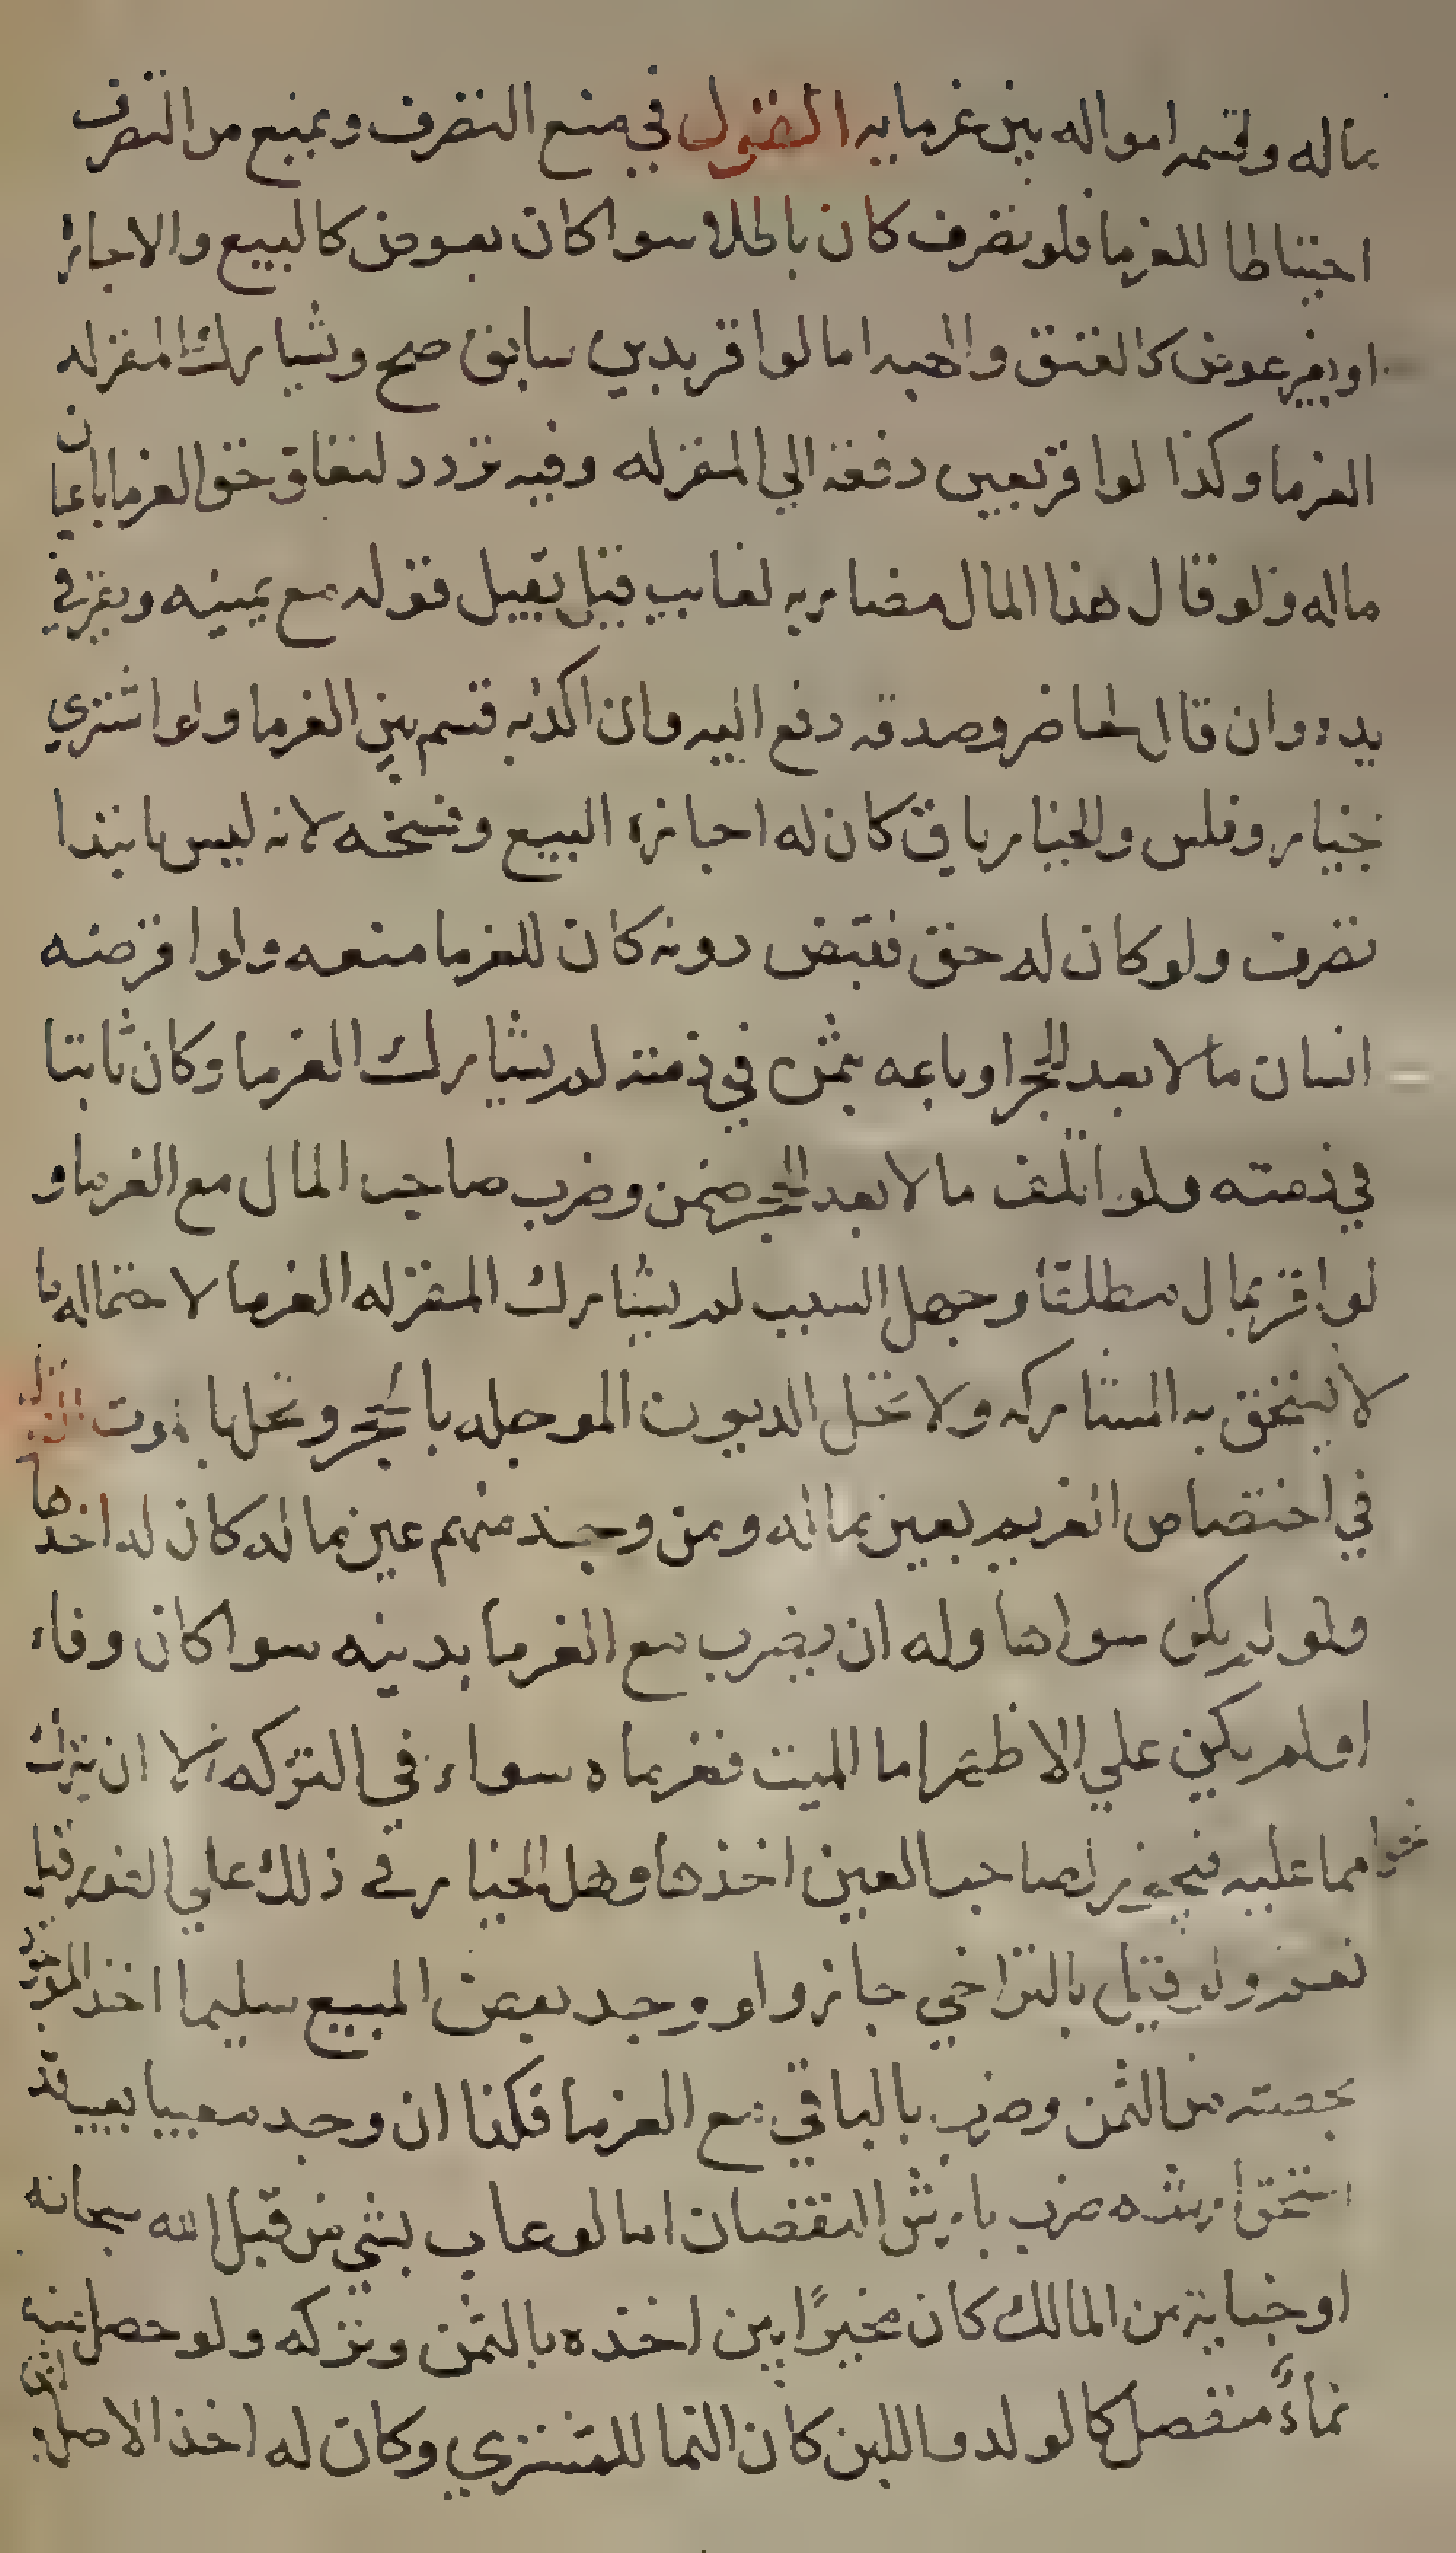 ماله وقسمه امواله بين غرمايه القول في منع التصرف ويمنع من التصرف
احتياطا للغرما فلو تصرف كان باطلا سوا كان بعوض كالبيع والاجارة
او بغير عوض كالعتق والهبه اما لو اقر بدين سابق صح وشارك المقر له
الغرما وكذا لو اقر بعين دفعت الي المقر له وفيه تردد لتعلق حق الغرما باعيان
ماله ولو قال هذا المال مضاربه لغايب قيل يقبل قوله مع يمينه ويقر في
يده وان قال لحاضر وصدقه دفع اليه وان اكذبه قسم بين الغرما ولو اشتري
بخيار وفلس والخيار باق كان له اجازة البيع وفسخه لانه ليس بابتدا
تصرف ولو كان له حق فقبض دونه كان للغرما منعه ولو اقرضه
انسان مالا بعد الحجر او باعه بثمن في ذمته لم يشارك الغرما وكان ثابتا
في ذمته ولو اتلف مالا بعد الحجر ضمن وضرب صاحب المال مع الغرما و
لو اقر بمال مطلقا وجهل السبب لم يشارك المقر له الغرما لاحتماله ما
لا يستحق به المشاركه ولا تحل الديون الموجله بالحجر وتحل بالموت القول
في اختصاص الغريم بعين ماله ومن وجد منهم عين ماله كان له اخذها
ولو لم يكن سواها وله ان يضرب مع الغرما بدينه سوا كان وفاء
او لم يكن علي الاظهر اما الميت فغرماه سواء في التركه الا ان يترك
نحوا مما عليه فيجوز لصاحب العين اخذها وهل الخيار في ذلك علي الفور قيل
نعم ولو قيل بالتراخي جاز ولو وجد بعض المبيع سليما اخذ الموجود
بحصته من الثمن وضرب بالباقي مع الغرما فكذا ان وجد معيبا بعيب قد
استحق ارشه ضرب بارش النقصان اما لو عاب بشي من قبل الله سبحانه
او جناية من المالك كان مخيرًا بين اخذه بالثمن وتركه ولو حصل منه
نماءٌ منفصل كالولد واللبن كان النما للمشتري وكان له اخذ الاصل